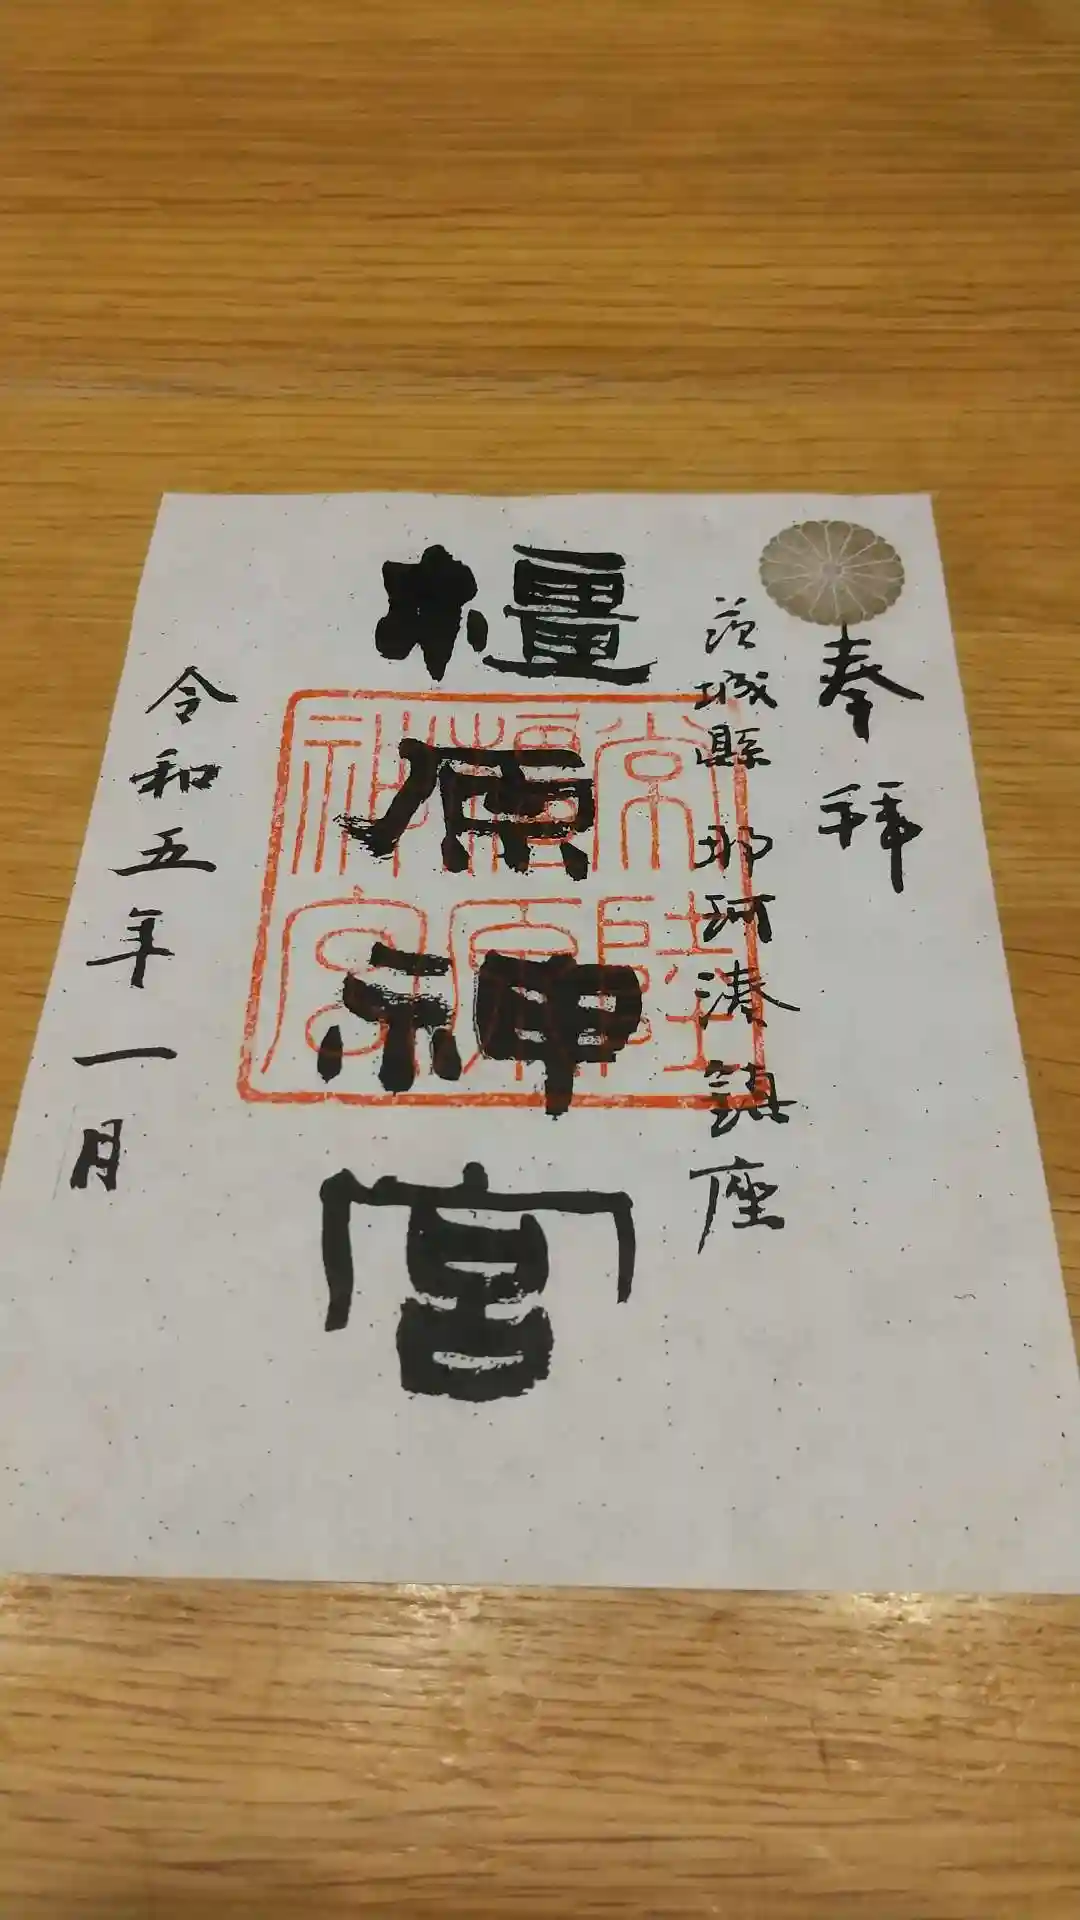 奉拝
茨城縣 那珂湊鎮座
橿原神宮
常陸
橿原
神宮
令和五年一月